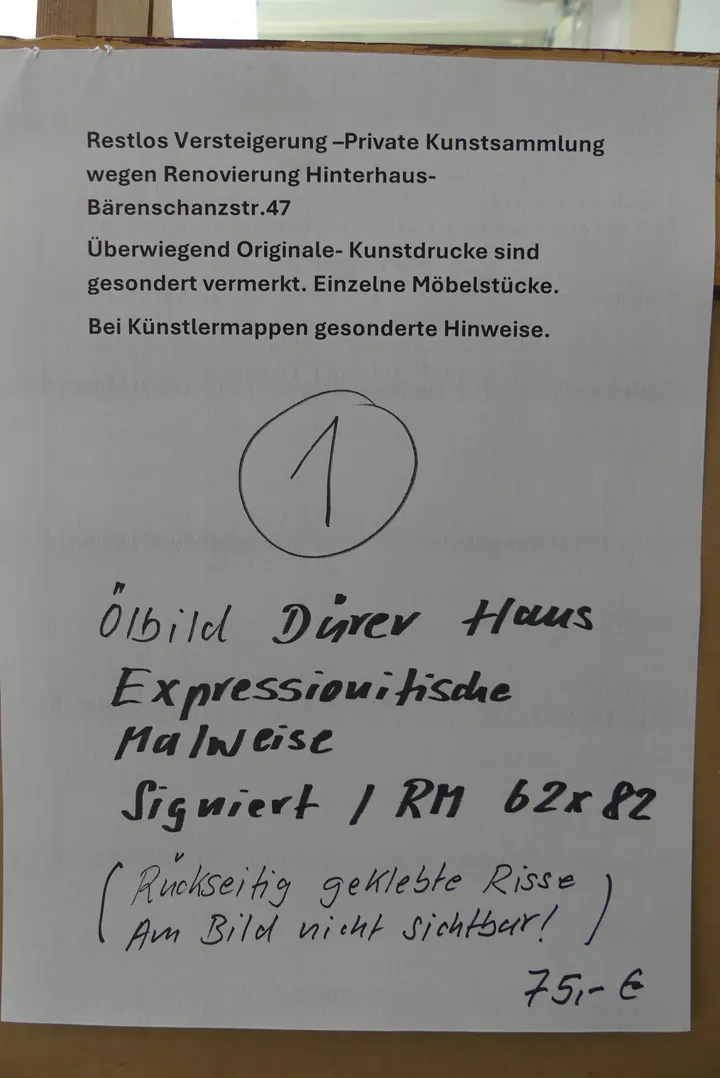 Restlos Versteigerung –Private Kunstsammlung
wegen Renovierung Hinterhaus-
Bärenschanzstr.47
Überwiegend Originale- Kunstdrucke sind
gesondert vermerkt. Einzelne Möbelstücke.
Bei Künstlermappen gesonderte Hinweise.
1
Ölbild Dürer Haus
Expressionitische
Malweise
Signiert / RM 62x82
(Rückseitig geklebte Risse
Am Bild nicht sichtbar!)
75,- €